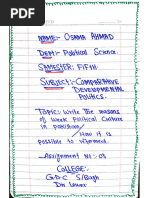 NAME:- OSAMA AHMAD
DEPT:- Political Science
SAMESTER: FIFTH
Subject:- COMPARATIVE
DEVELOPMENTAL
POLITICS.
Topic:- Write the reasons
of weak Political Culture
in Pakistan? How it is
possible to reformed.
Assignment No:- 03
COLLEGE:-
G.D.C S/Bagh
Dir Lower